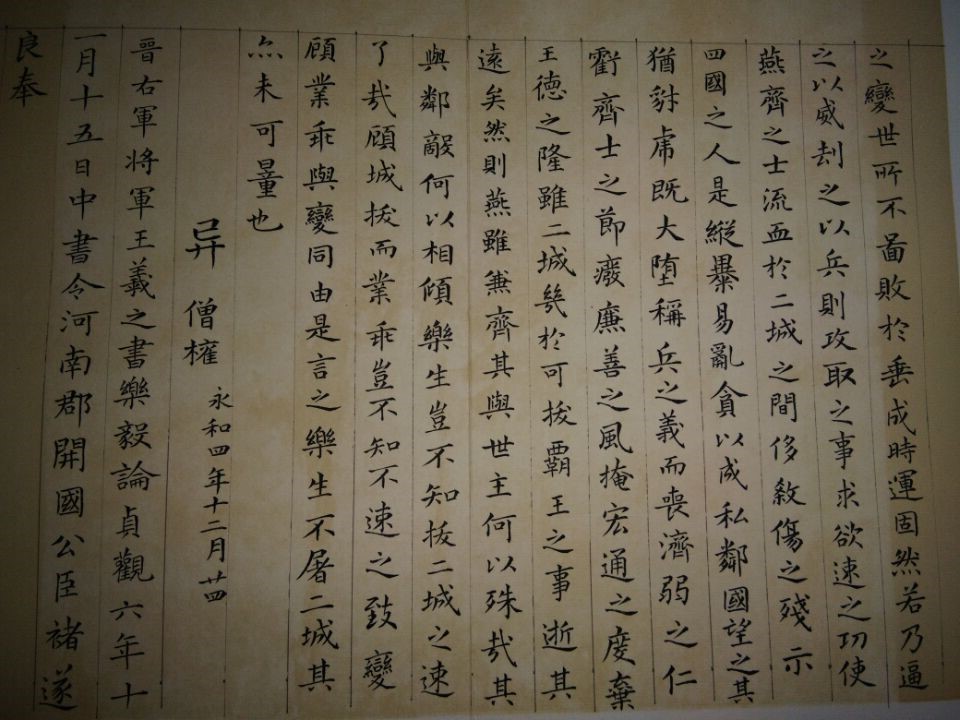 之變世所不啚敗於垂成時運固然若乃逼
之以威刦之以兵則攻取之事求欲速之功使
燕齊之士流血於二城之間侈敘傷之殘示
四國之人是縱暴易亂貪以成私鄰國望之其
猶豺虎既大堕稱兵之義而喪濟弱之仁
虧齊士之節癈廉善之風掩宏通之度棄
王德之隆雖二城幾於可拔覇王之事逝其
遠矣然則燕雖兼齊其與世主何以殊哉其
與鄰敵何以相傾樂生豈不知拔二城之速
了哉顧城拔而業乖豈不知不速之致變
顧業乖與變同由是言之樂生不屠二城其
亦未可量也
异 僧權 永和四年十二月廿四
晉右軍将軍王羲之書樂毅論貞觀六年十
一月十五日中書令河南郡開國公臣褚遂
良奉